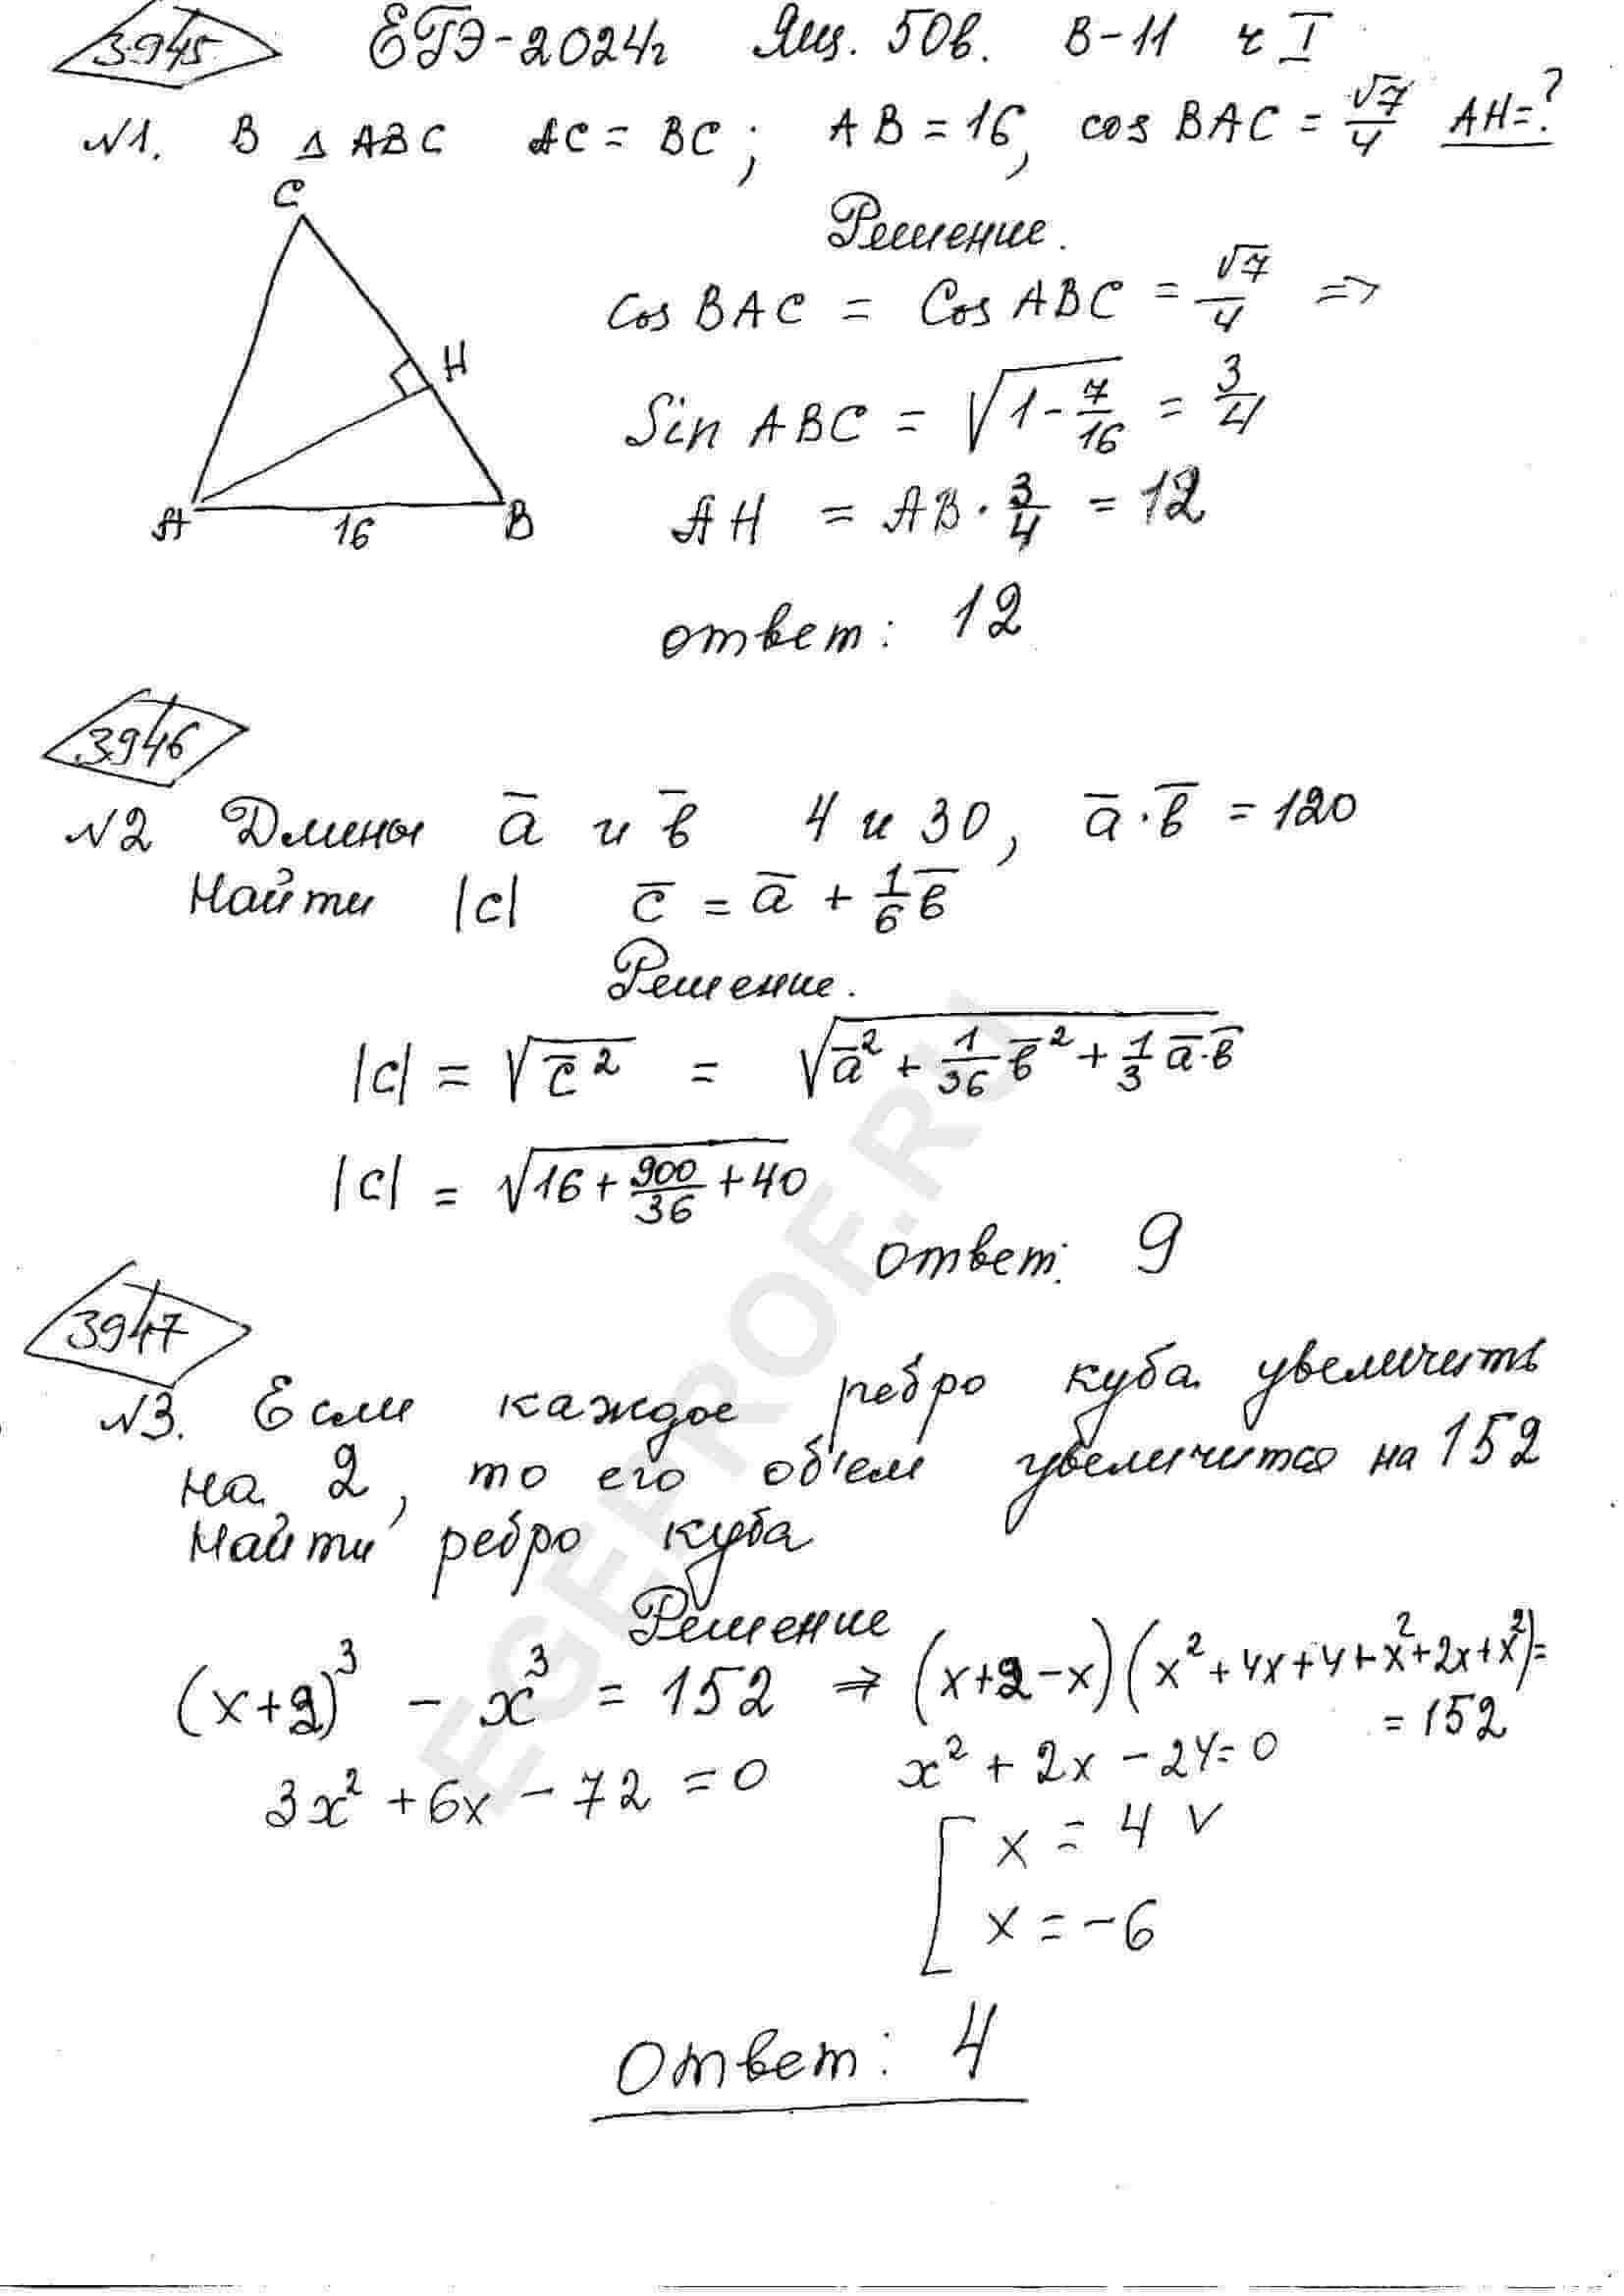 3945 ЕГЭ-2024г Ящ. 50в. В-11 ч I
№1. В △ ABC AC = BC; AB = 16, cos BAC = √7/4 AH = ?
C
H
A
16
B
Решение.
Cos BAC = Cos ABC = √7/4 =>
Sin ABC = √(1 - 7/16) = 3/4
AH = AB · 3/4 = 12
ответ: 12
3946
№2 Длины a̅ и b̅ 4 и 30, a̅ · b̅ = 120
Найти |c| c̅ = a̅ + 1/6 b̅
Решение.
|c| = √(c̅²) = √(a̅² + 1/36 b̅² + 1/3 a̅·b̅)
|c| = √(16 + 900/36 + 40)
ответ: 9
3947
№3. Если каждое ребро куба увеличить
на 2, то его об'ем увеличится на 152
Найти ребро куба
Решение
(x+2)³ - x³ = 152 => (x+2-x)(x²+4x+4+x²+2x+x²)=
= 152
3x² + 6x - 72 = 0 x² + 2x - 24 = 0
[ x = 4 v
x = -6
Ответ: 4
EGEPROF.RU